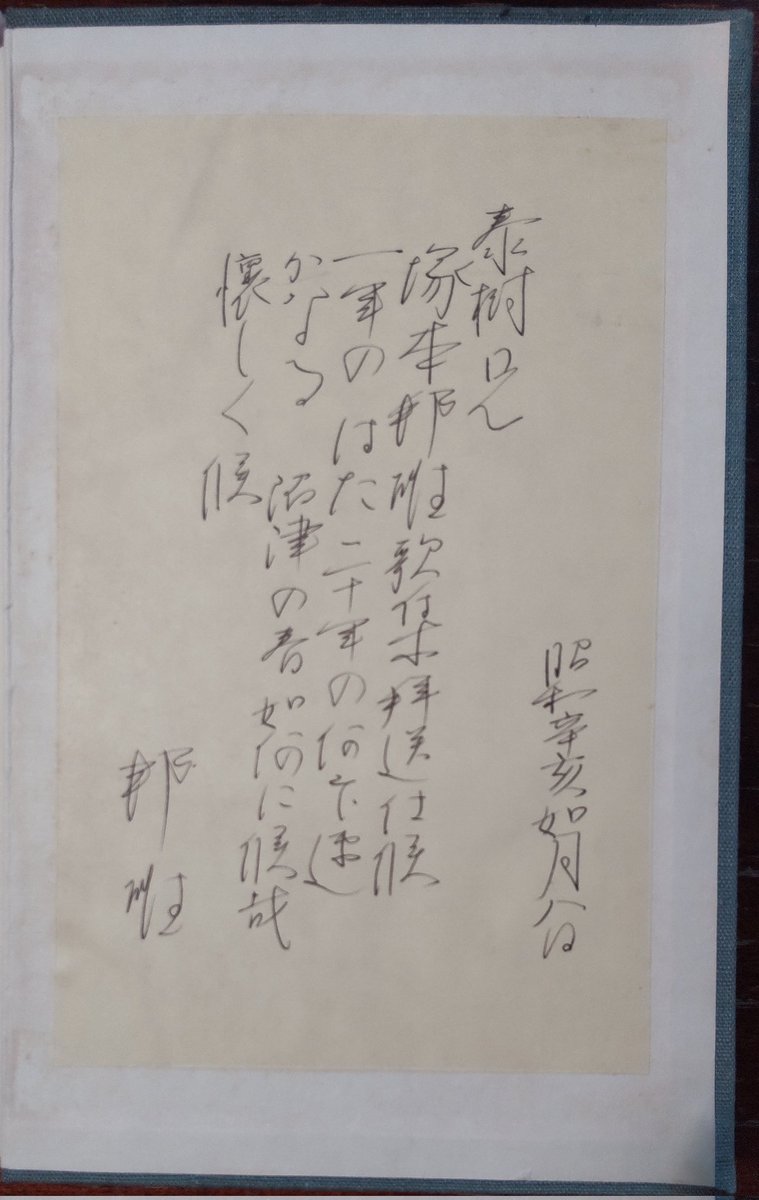 昭和辛亥如月八日
泰樹兄
塚本邦雄歌集拝送仕候
一年の はた二十年の何ぞ速
かなる 沼津の春如何に候哉
懐しく候
邦雄